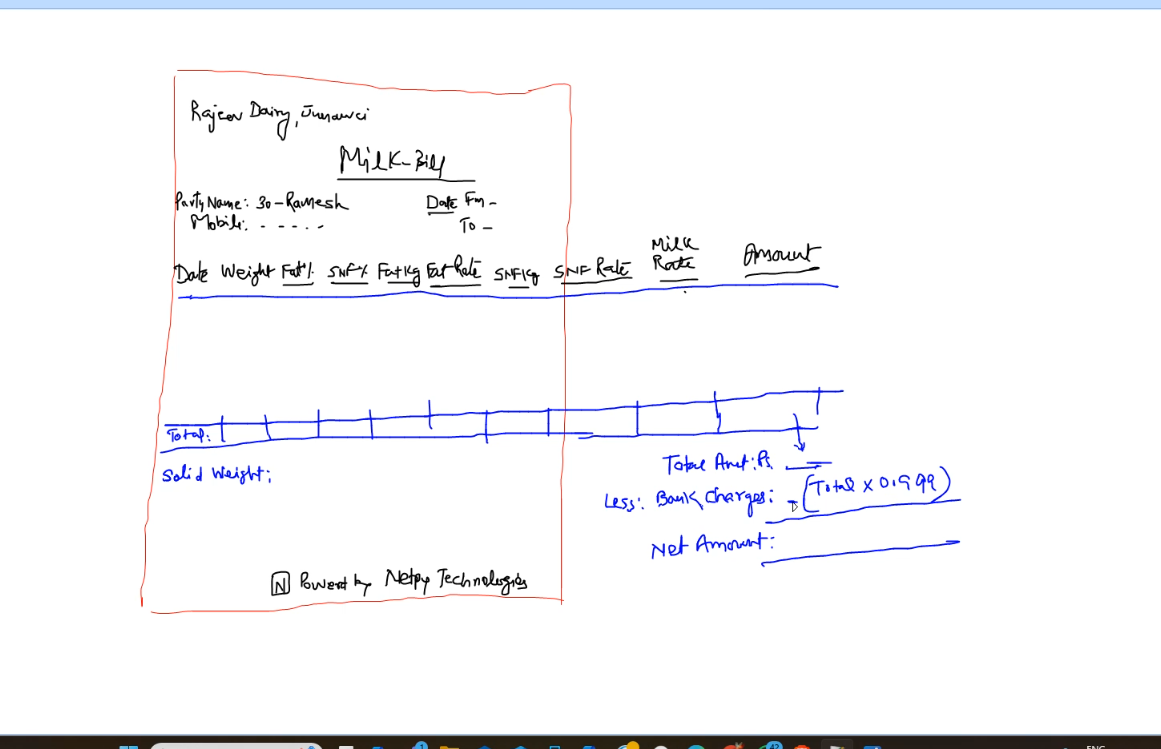 Rajeev Dairy, Junawai
Milk-Bill
Party Name: 30-Ramesh Date Fm -
Mobile: - - - - - To -
Date Weight Fat% SNF% Fat Kg Fat Rate SNF Kg SNF Rate Milk Rate Amount
Total:
Solid Weight:
Total Amt: Rs.
Less: Bank Charges: - (Total x 0.999)
Net Amount:
N Powered by Netpy Technologies
ENG